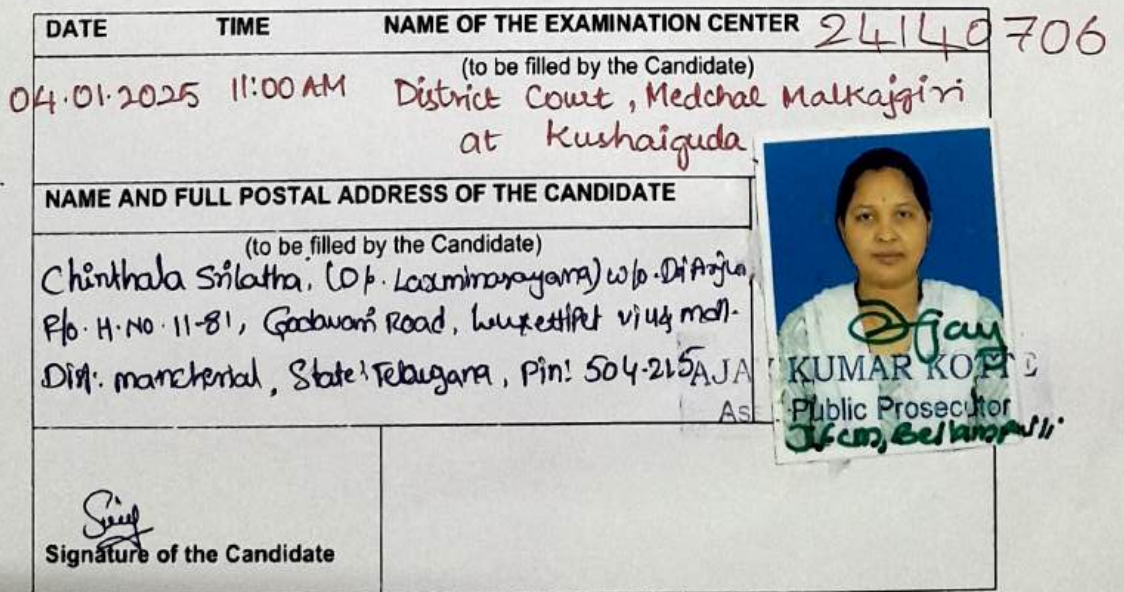 DATE TIME NAME OF THE EXAMINATION CENTER 24140706
(to be filled by the Candidate)
04.01.2025 11:00 AM District Court, Medchal Malkajgiri
at Kushaiguda
NAME AND FULL POSTAL ADDRESS OF THE CANDIDATE
(to be filled by the Candidate)
Chinthala Srilatha, (D/o. Laxminarayana) w/o. D. Arjun
R/o. H.NO. 11-81, Godavari Road, Luxettipet vill & mdl.
Dist: mancherial, State: Telangana, Pin: 504-215
Ajay
AJAY KUMAR KOTTE
Public Prosecutor
Jfcm, Bellampalli
Signature of the Candidate